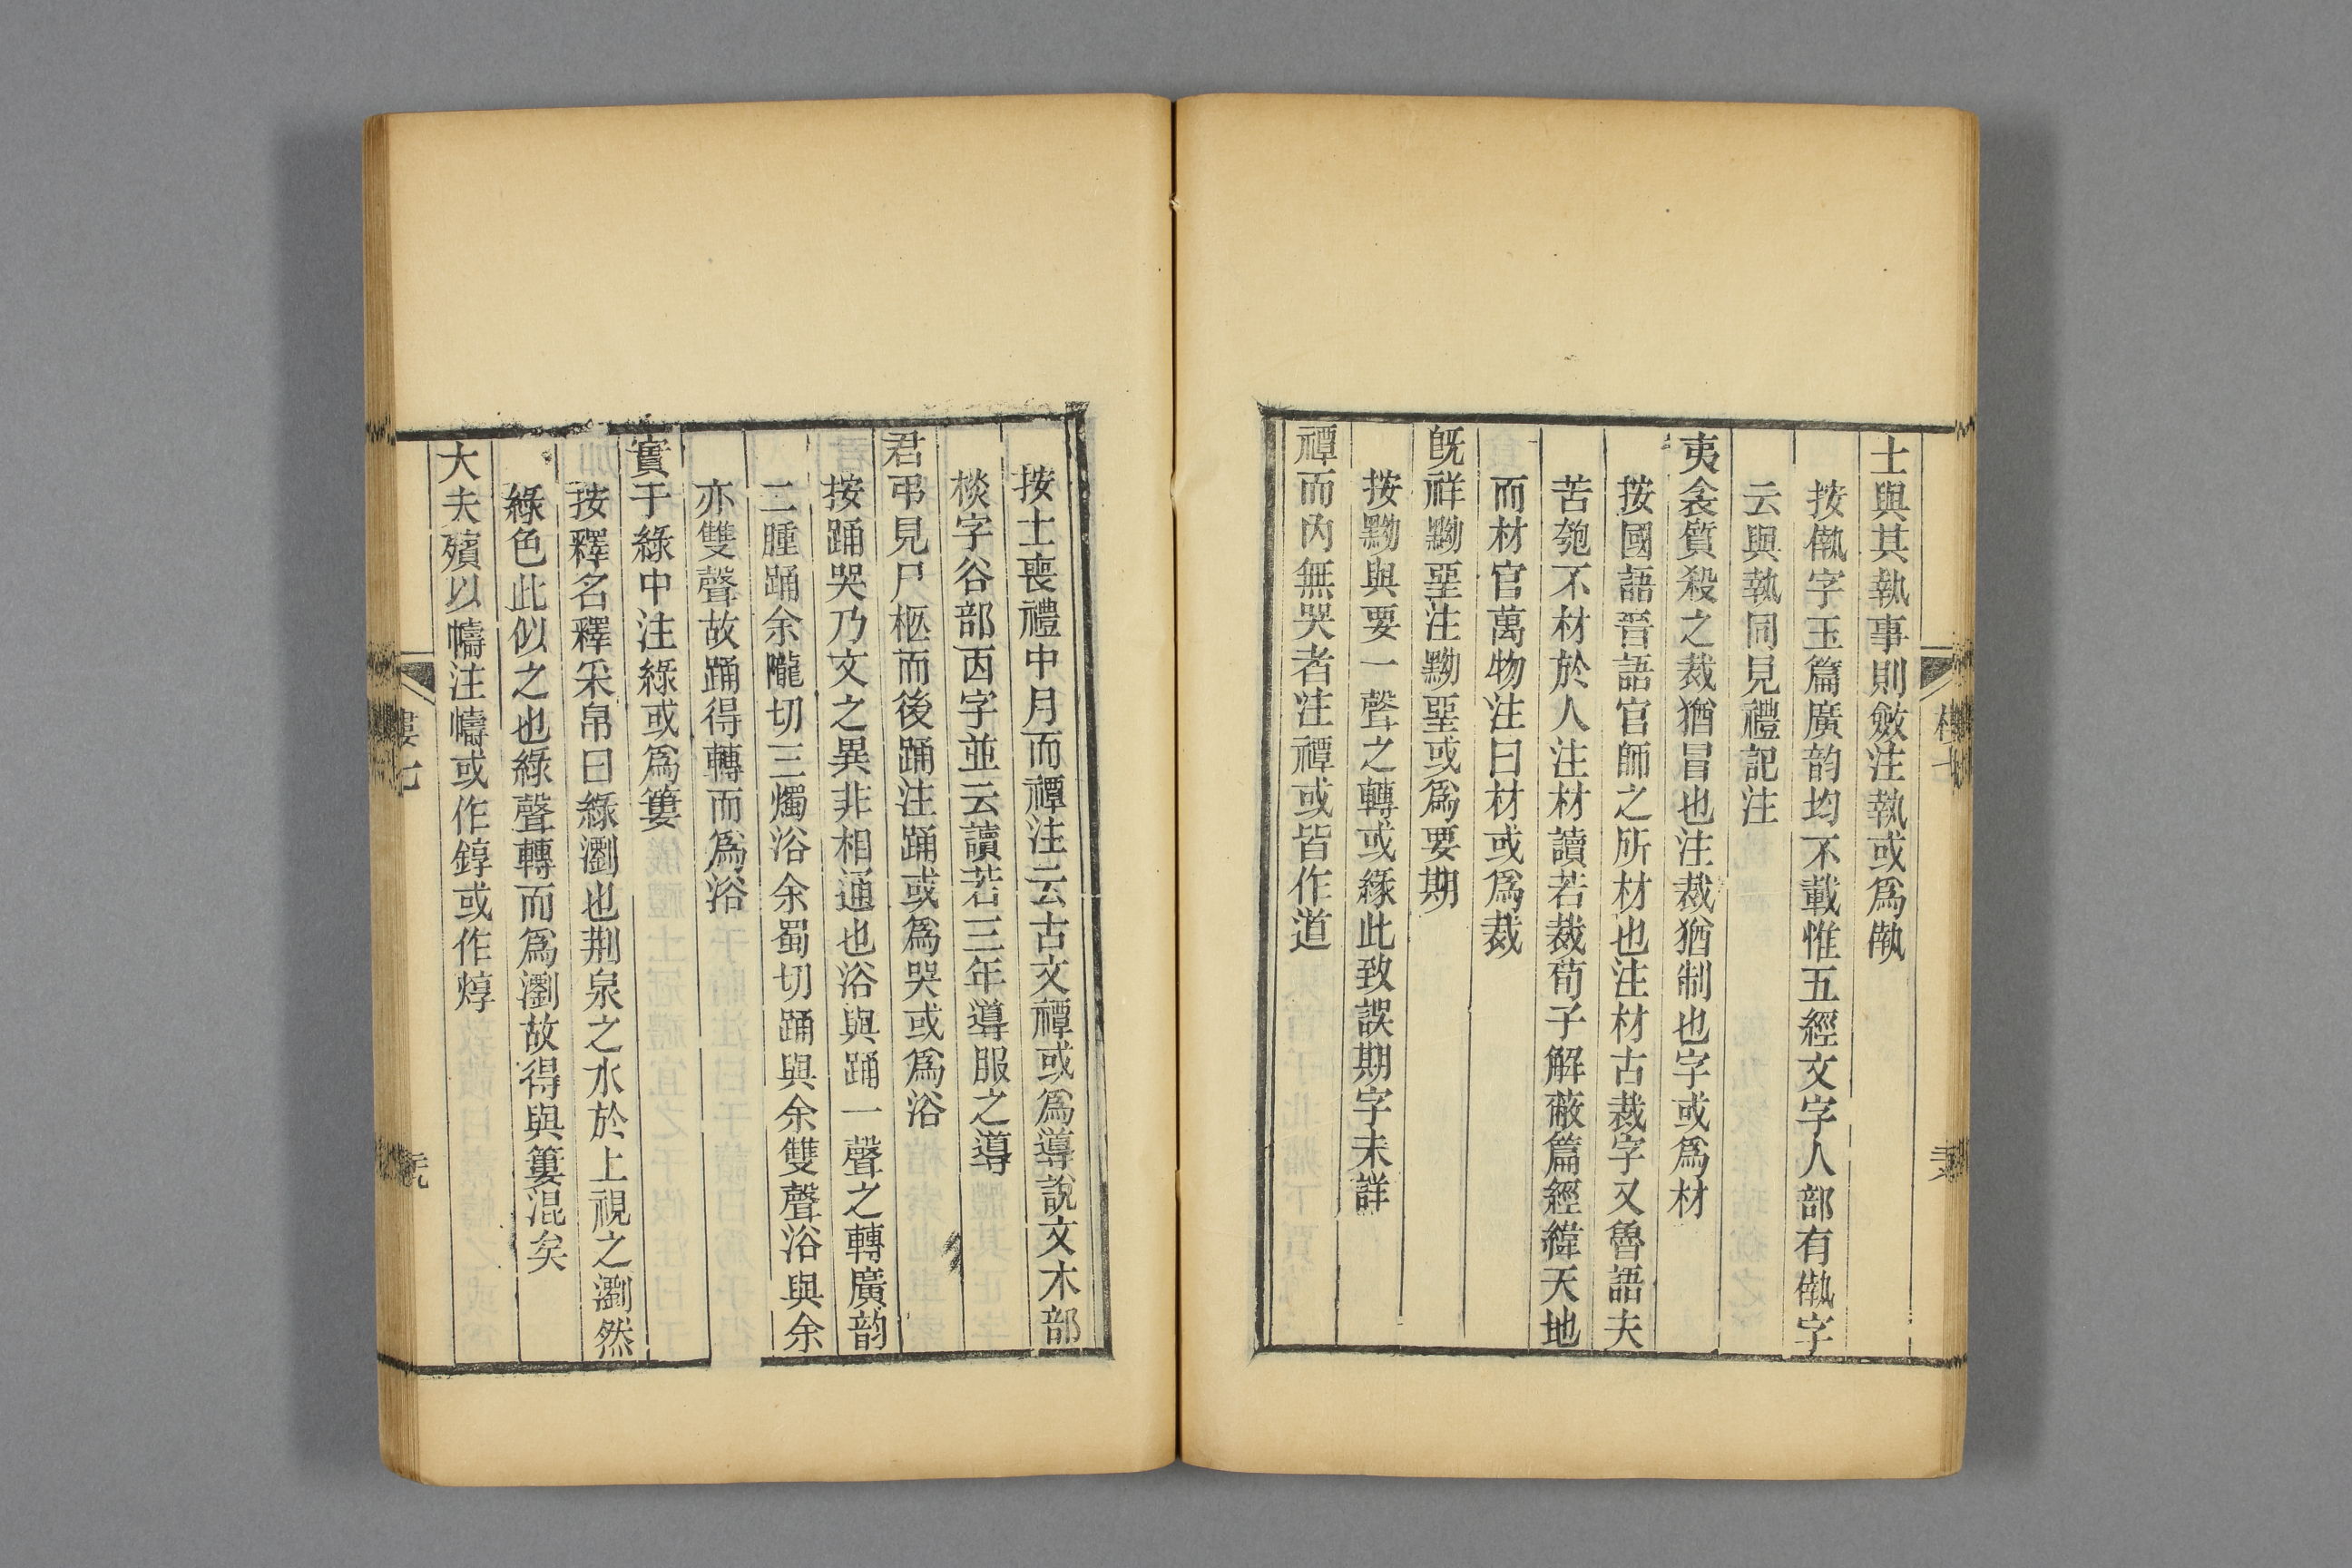 士與其執事則斂注執或爲㑺
按㑺字玉篇廣韵均不載惟五經文字人部有㑺字
云與執同見禮記注
夷衾質殺之裁猶冒也注裁猶制也字或爲材
按國語晉語官師之所材也注材古裁字又魯語夫
苦匏不材於人注材讀若裁荀子解蔽篇經緯天地
而材官萬物注曰材或爲裁
旣祥黝堊注黝堊或爲要期
按黝與要一聲之轉或緣此致誤期字未詳
禫而內無哭者注禫或皆作道
按士喪禮中月而禫注云古文禫或爲導說文木部
棪字谷部㐁字並云讀若三年導服之導
君弔見尸柩而後踊注踊或爲哭或爲浴
按踊哭乃文之異非相通也浴與踊一聲之轉廣韵
二腫踊余隴切三燭浴余蜀切踊與余雙聲浴與余
亦雙聲故踊得轉而爲浴
實于綠中注綠或爲簍
按釋名釋采帛曰綠瀏也荆泉之水於上視之瀏然
綠色此似之也綠聲轉而爲瀏故得與簍混矣
大夫殯以幬注幬或作錞或作焞